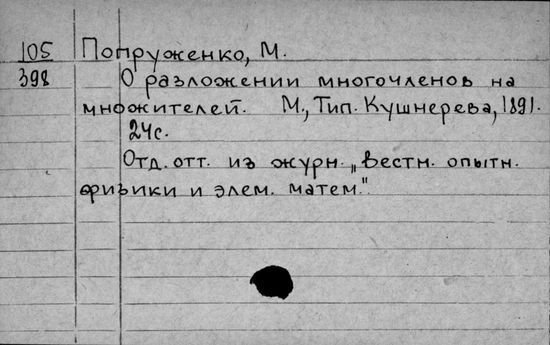 105 Попруженко, М.
398 О разложении многочленов на
множителей. М., Тип. Кушнерева, 1891.
24с.
Отд. отт. из журн. „Вестн. опытн.
физики и элем. матем."